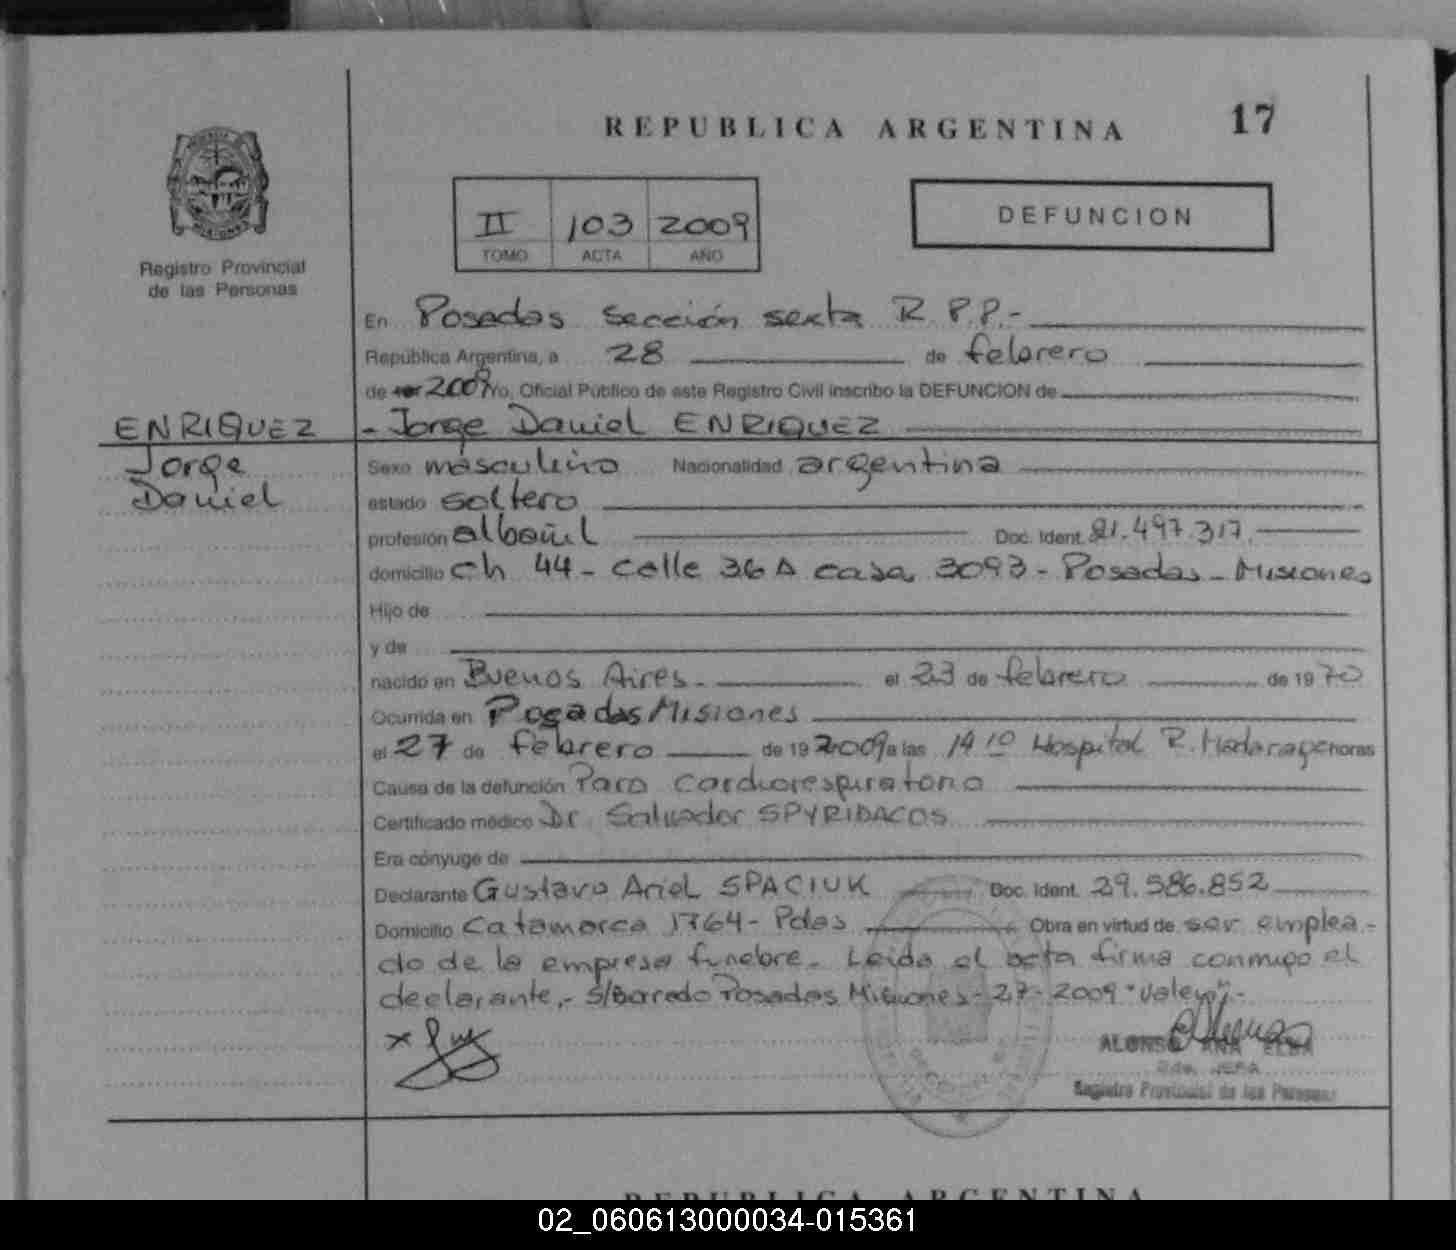 17
REPUBLICA ARGENTINA
II 103 2009
TOMO ACTA AÑO
DEFUNCION
Registro Provincial
de las Personas
En Posadas Sección sexta R.P.P.-
República Argentina, a 28 de febrero
de 2009 Yo, Oficial Público de este Registro Civil inscribo la DEFUNCION de
ENRIQUEZ
Jorge
Daniel
- Jorge Daniel ENRIQUEZ
Sexo masculino Nacionalidad argentina
estado soltero
profesión albañil Doc. Ident. 21.497.317.
domicilio Ch 44 - calle 36 A casa 3093 - Posadas - Misiones
Hijo de
y de
nacido en Buenos Aires - el 23 de febrero de 1970
Ocurrida en Posadas Misiones
el 27 de febrero de 19 2009 a las 14 10 Hospital R. Madariaga horas
Causa de la defunción Paro Cardiorespiratorio
Certificado médico Dr. Salvador SPYRIDACOS
Era cónyuge de
Declarante Gustavo Ariel SPACIUK Doc. Ident. 29.586.852
Domicilio Catamarca 1764 - Pdas Obra en virtud de ser emplea-
do de la empresa funebre. Leida el acta firma conmigo el
declarante.- S/Borrado Posadas Misiones - 27 - 2009 "Valen".-
ALONSO ANA ELBA
JEFA
Registro Provincial de las Personas
REPUBLICA ARGENTINA
02_060613000034-015361